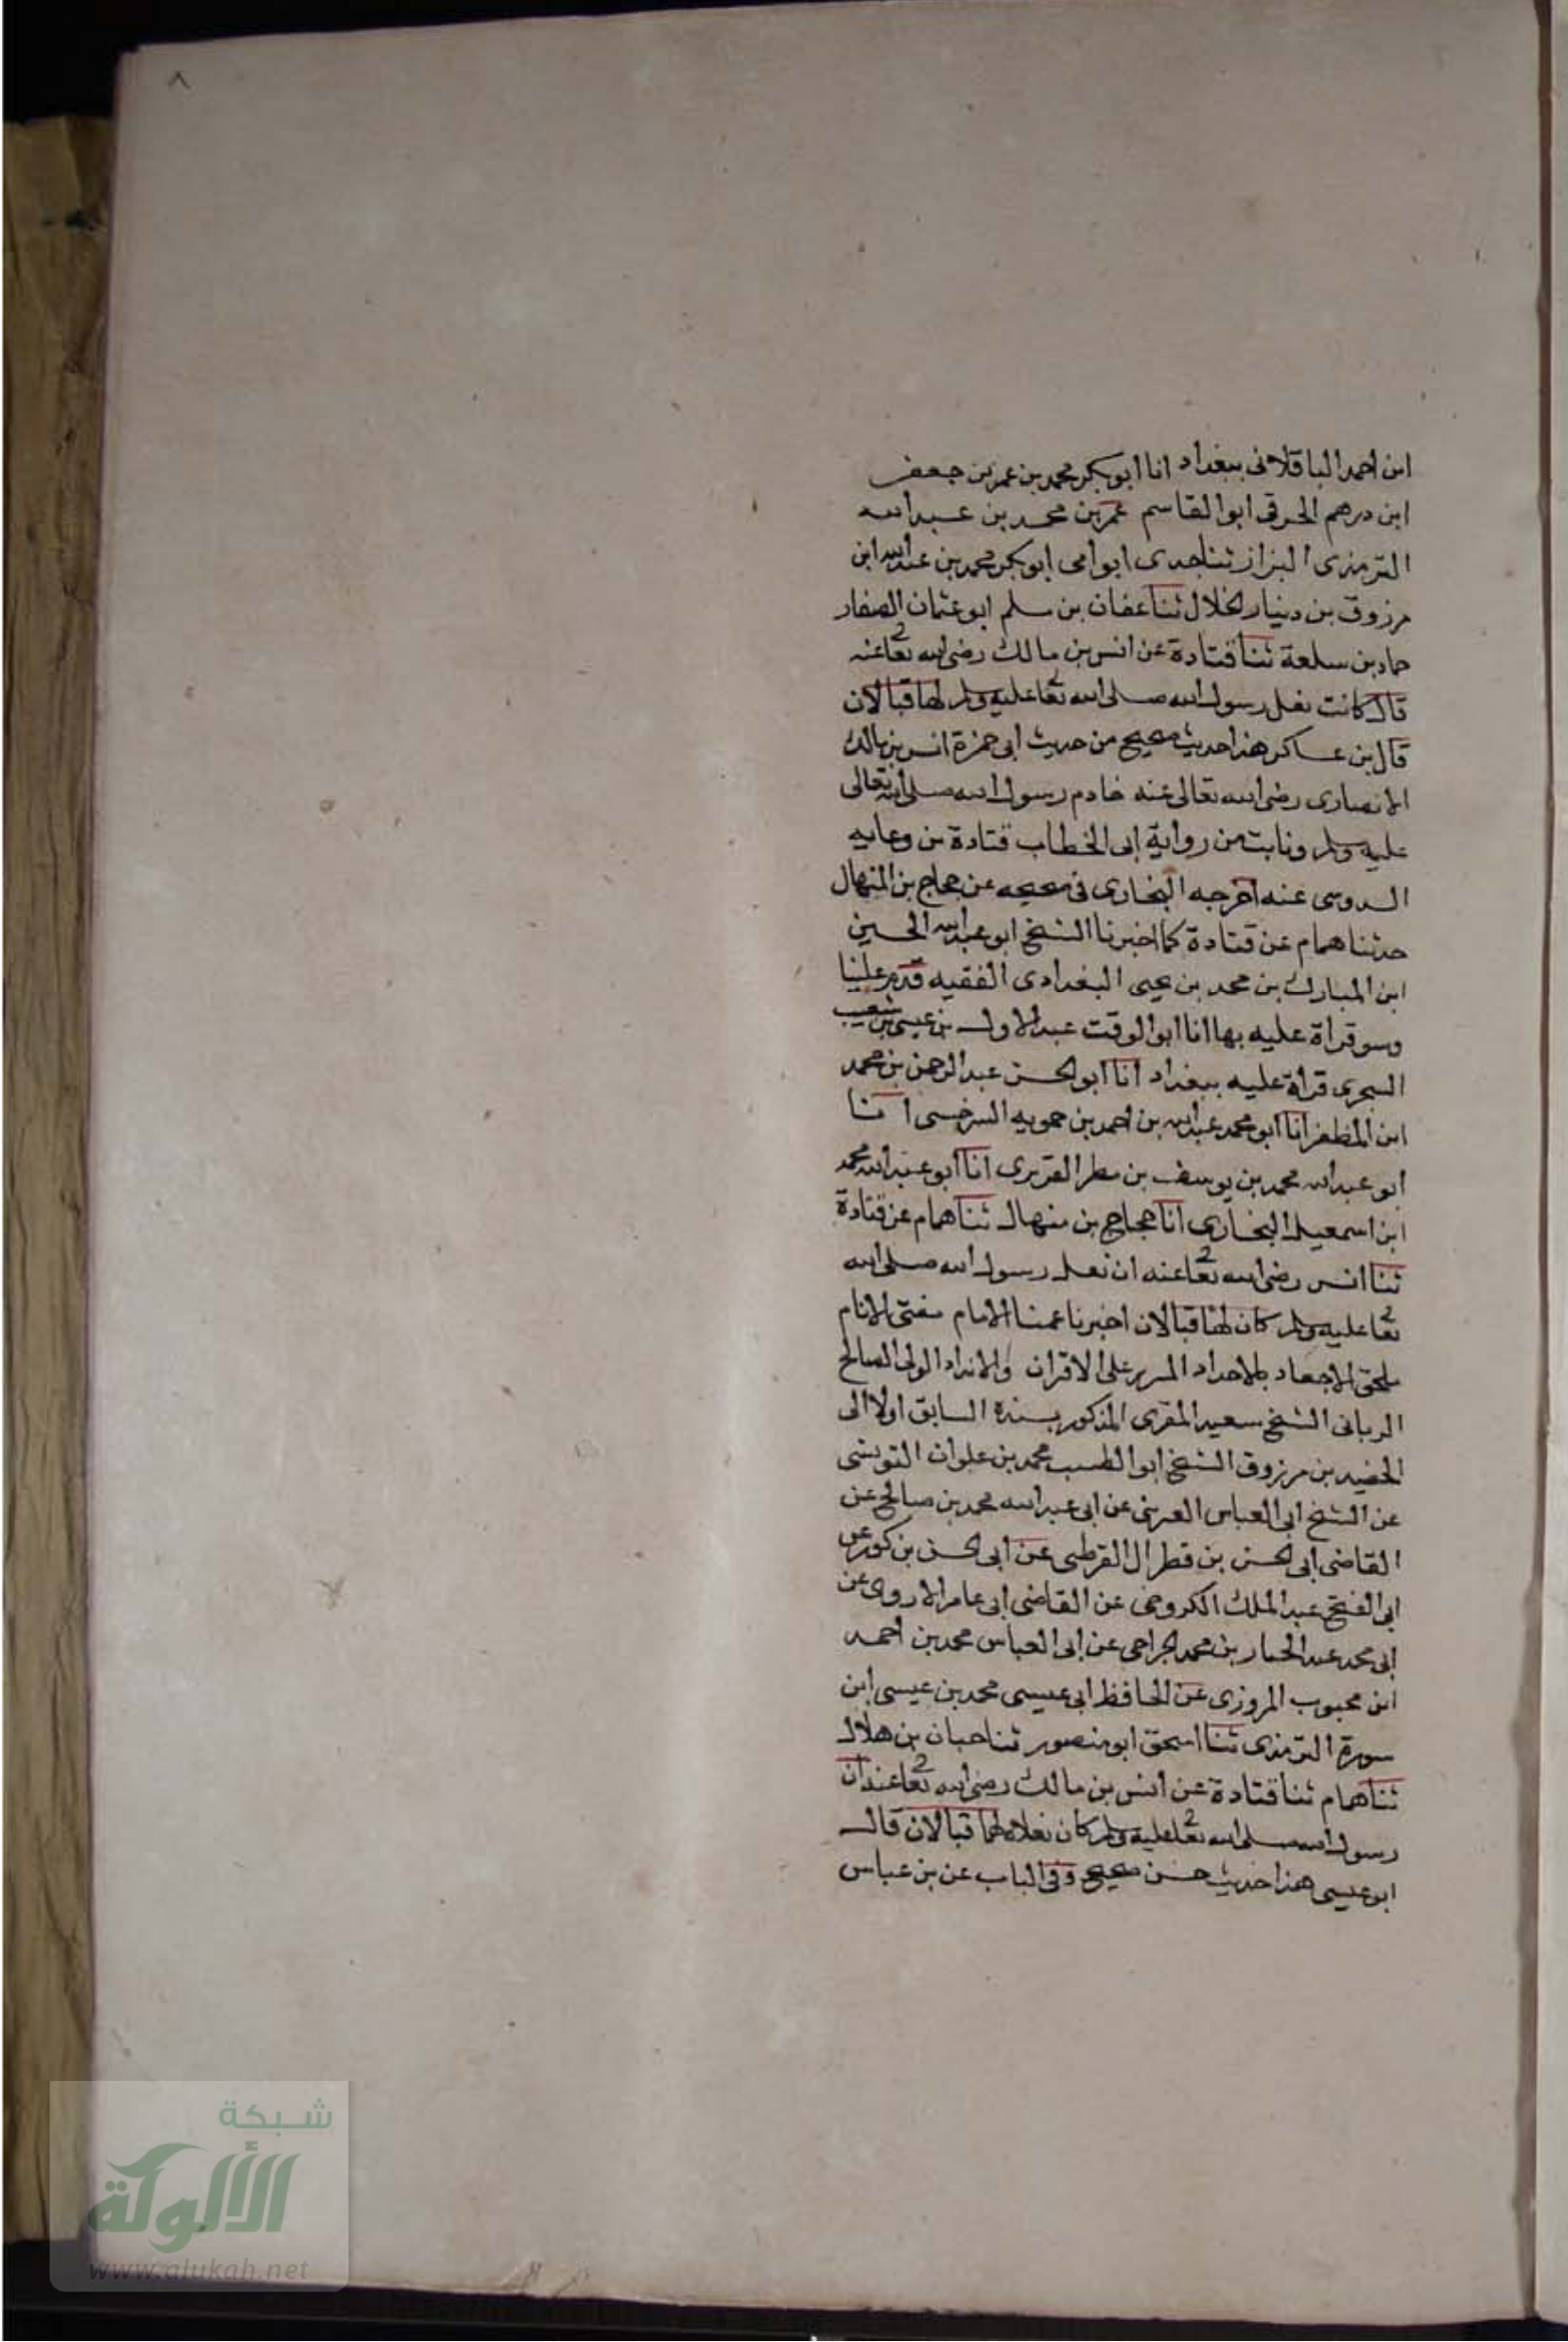 ٨
ابن احمد الباقلانى ببغداد انا ابو بكر محمد بن عمر بن جعفر
ابن درهم الحرقى ابوا القاسم عمر بن محمد بن عبد الله
الترمذى البزاز ثنا جدى ابو امى ابو بكر محمد بن عبد الله ابن
مرزوق بن دينار الخلال ثنا عفان بن سلم ابو عثمان الصفار
حماد بن سلعة ثنا قتادة عن انس بن مالك رضى الله تعا عنه
قال كانت نعل رسول الله صلى الله تعا عليه وسلم لها قبالان
قال بن عساكر هذا حديث صحيح من حديث ابى حمزة انس بن مالك
الانصارى رضى الله تعالى عنه خادم رسول الله صلى الله تعالى
عليه وسلم وثابت من رواية ابى الخطاب قتادة بن وعايه
السدوسى عنه اخرجه البخارى فى صحيحه عن حجاج بن المنهال
حدثنا همام عن قتادة كما اخبرنا الشيخ ابو عبد الله الحسين
ابن المبارك بن محمد بن يحيى البغدادى الفقيه قدم علينا
وسو قراة عليه بها انا ابو الوقت عبد الاول بن عيسى بن شعيب
السجرى قراة عليه ببغداد انا ابو الحسن عبد الرحمن بن محمد
ابن المظفر انا ابو محمد عبد الله بن احمد بن حمويه السرخسى انا
ابو عبد الله محمد بن يوسف بن مطر الفربرى انا ابو عبد الله محمد
ابن اسمعيل البخارى انا حجاج بن منهال ثنا همام عن قتادة
ثنا انس رضى الله تعا عنه ان نعل رسول الله صلى الله
تعا عليه وسلم كان لها قبالان اخبرنا عمنا الامام مفتى الانام
ملحق الاحفاد بالاجداد على الاقران والانداد الولى الصالح
الربانى الشيخ سعيد المقرى المذكور بسنده السابق اولا الى
الحفيد بن مرزوق الشيخ ابوا الطيب محمد بن علوان التونسى
عن الشيخ ابى العباس الغبرينى عن ابى عبد الله محمد بن صالح عن
القاضى ابى الحسن بن قطرال القرطبى عن ابى الحسن بن كور عن
ابى الفتح عبد الملك الكروخى عن القاضى ابى عامر الازدى عن
ابى محمد عبد الجبار بن محمد الجراحى عن ابى العباس محمد بن احمد
ابن محبوب المروزى عن الحافظ ابى عيسى محمد بن عيسى ابن
سورة الترمذى ثنا اسحق ابو منصور ثنا حبان بن هلال
ثنا همام ثنا قتادة عن انس بن مالك رضى الله تعا عنه ان
رسول الله صلى الله تعا عليه وسلم كان نعلاه لهما قبالان قال
ابو عيسى هذا حديث حسن صحيح وفى الباب عن بن عباس
شبكة
الألوكة
www.alukah.net